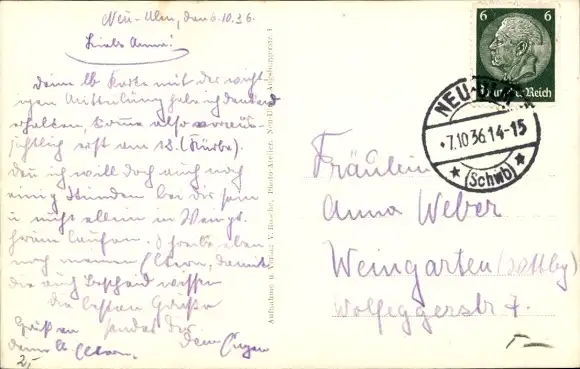 Neu-Ulm, den 6.10.36.
Liebe Anna!
Deine lb Karte mit der wichti
gen Mitteilung habe ich dankend
erhalten, komme also voraus-
sichtlich erst am 18. (Kürbe).
Den ich will doch auch noch
einig Stunden bei dir sein
u nicht allein in Wengt.
herum laufen. Schreibe eben
noch meinen Eltern, damit
die auch bescheid wissen
die besten Grüße
sendet dir
Grüß an
deine lb Eltern.
dein Eugen
2,-
Aufnahme u. Verlag V. Photo-Atelier, Neu-Ulm, Augsburgerstr. 1
6 6
Deutsches Reich
NEU-ULM
*7.10.36.14-15
* (Schwb) *
Fräulein
Anna Weber
Weingarten (Wttbg)
Wolfeggerstr 7.